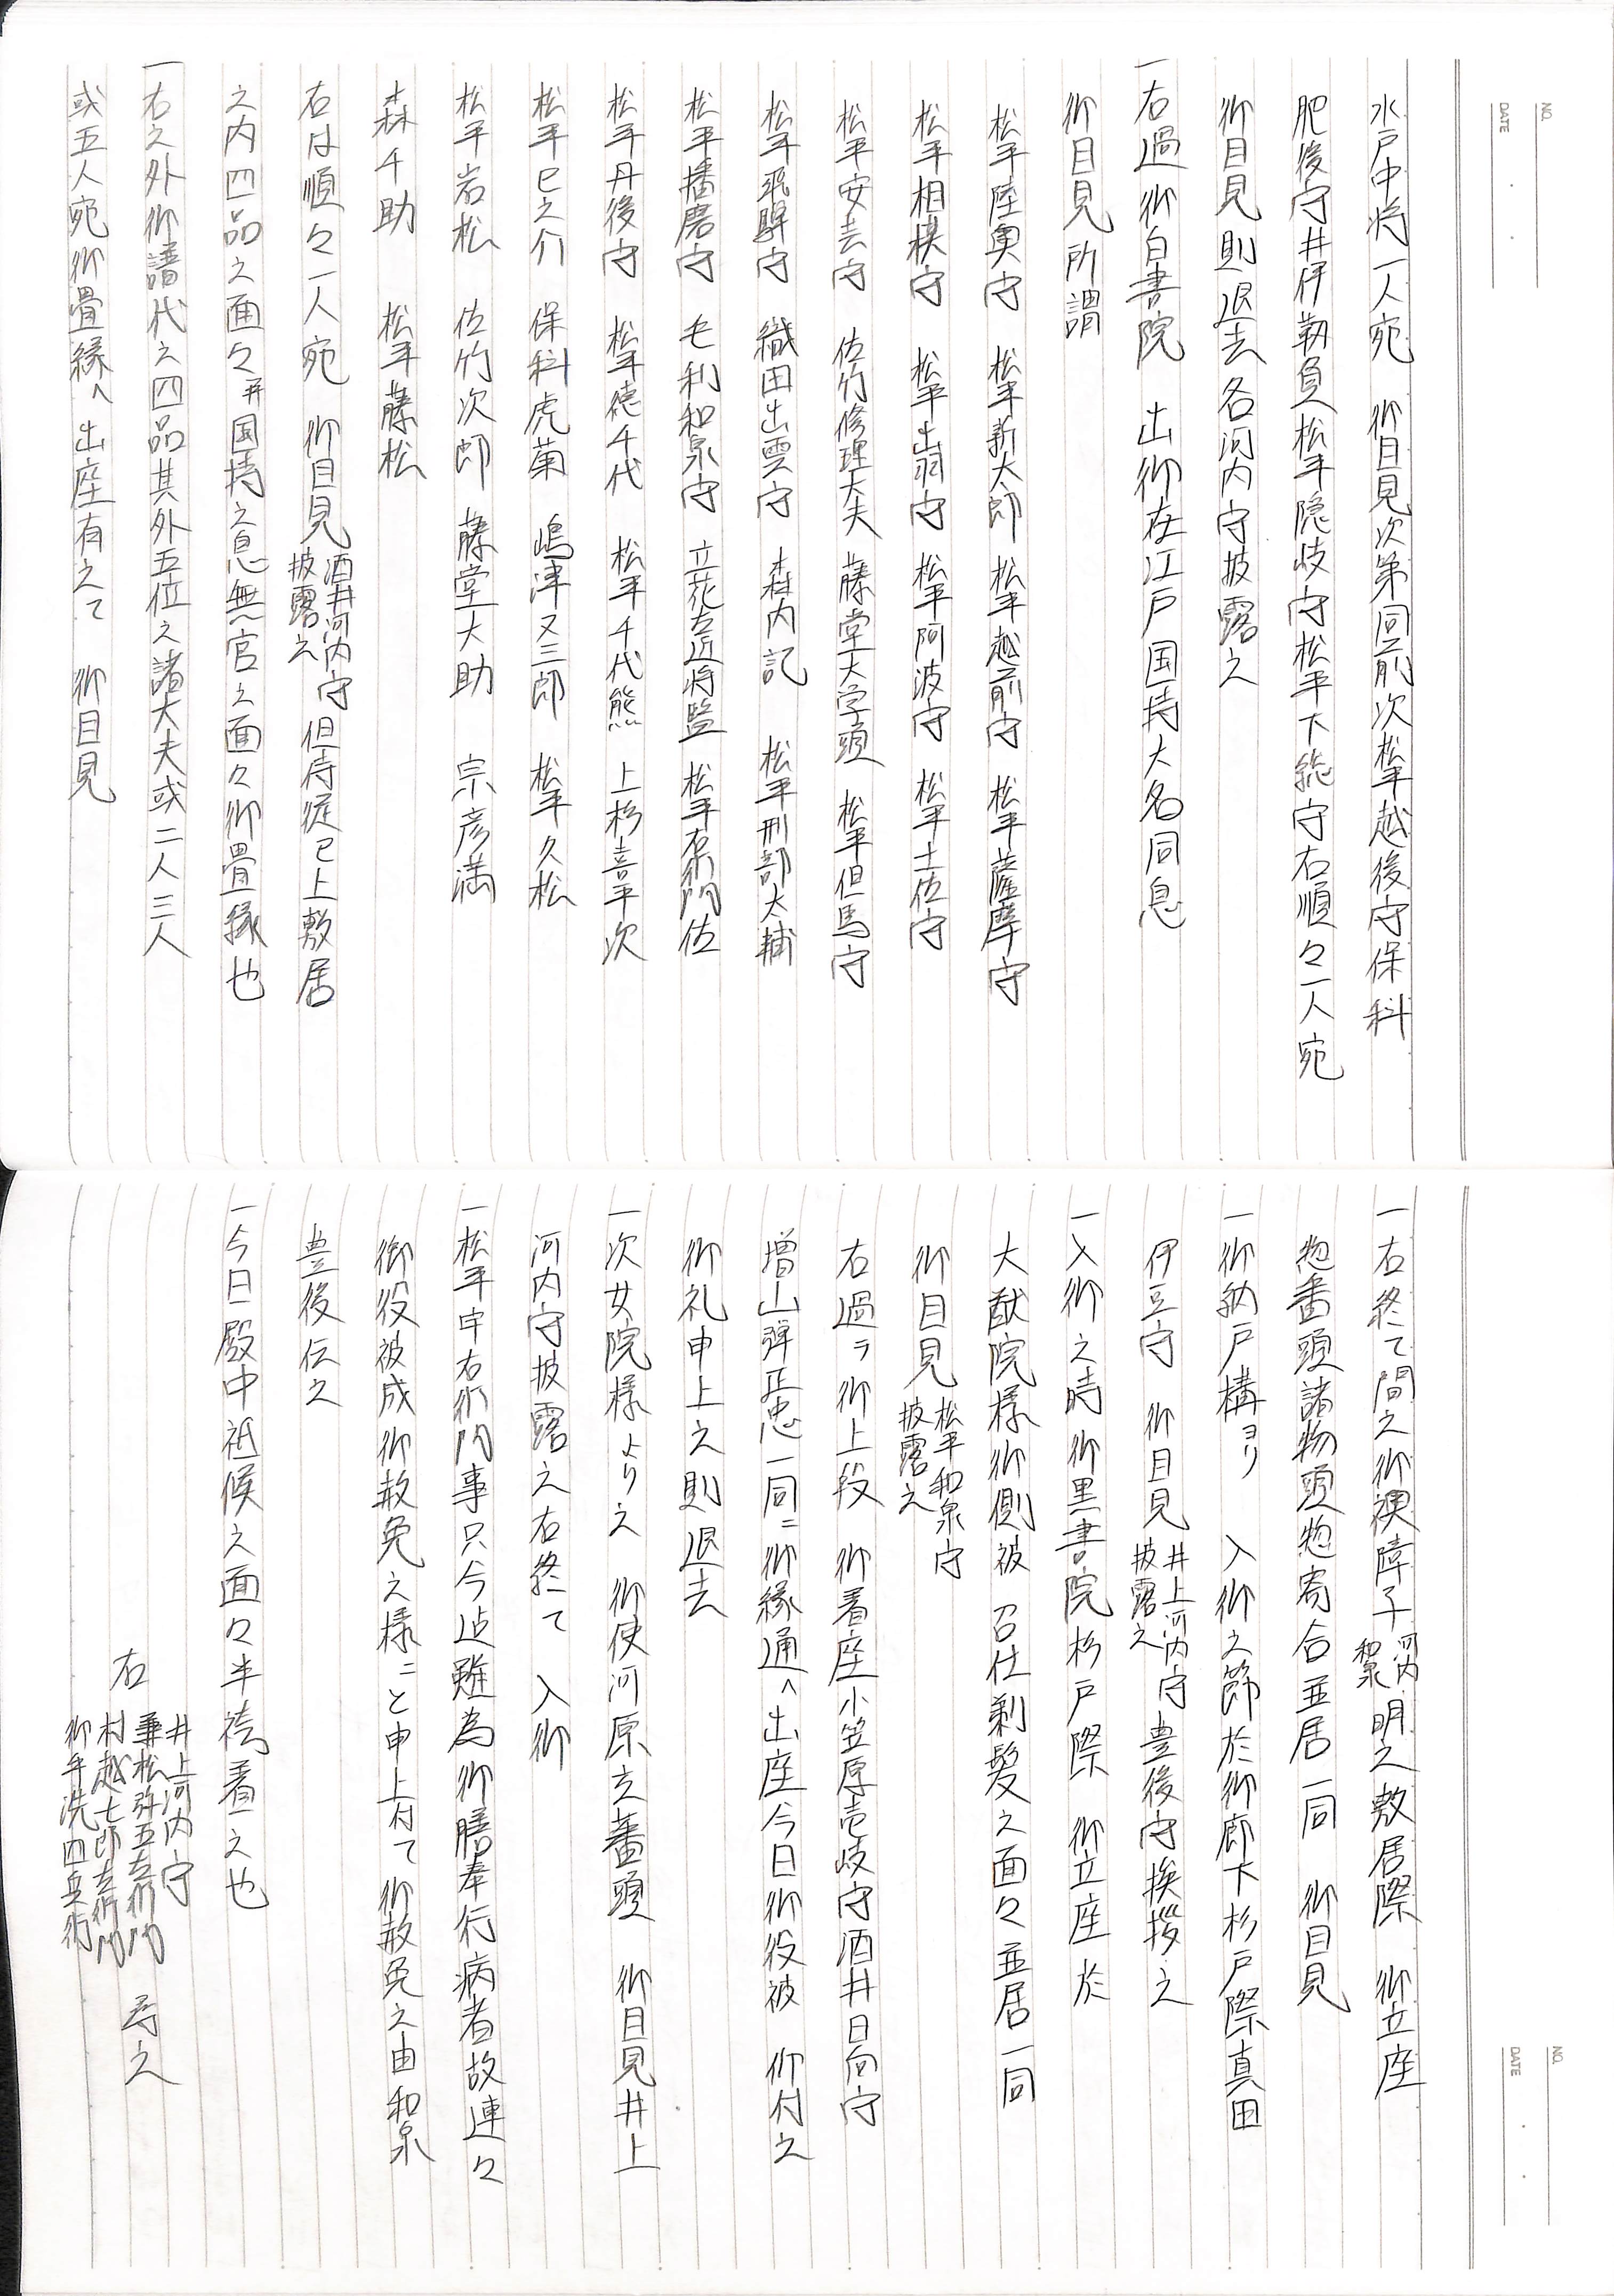 NO.
DATE
水戸中将一人宛 御目見次第同前次松平越後守保科
肥後守井伊靱負松平隠岐守松平下総守右順々一人宛
御目見則退去各河内守披露之
一右過御白書院 出御在江戸国持大名同息
御目見所謂
松平陸奥守 松平新太郎 松平越前守 松平薩摩守
松平相模守 松平出羽守 松平阿波守 松平土佐守
松平安芸守 佐竹修理大夫 藤堂大学頭 松平但馬守
松平飛騨守 織田出雲守 森内記 松平刑部大輔
松平播磨守 毛利和泉守 立花左近将監 松平右衛門佐
松平丹後守 松平徳千代 松平千代熊 上杉喜平次
松平巳之介 保科虎菊 嶋津又三郎 松平久松
松平岩松 佐竹次郎 藤堂大助 宗彦満
森千助 松平藤松
右は順々一人宛 御目見 酒井河内守披露之 但侍従已上敷居
之内四品之面々并国持之息無官之面々御畳縁也
一右之外御譜代之四品其外五位之諸大夫或二人三人
或五人宛御畳縁へ出座有之て 御目見
NO.
DATE
一右終て間之御襖障子 河内和泉 明之敷居際 御立座
惣番頭諸物頭惣寄合並居一同 御目見
一御納戸構ヨリ 入御之節於御廊下杉戸際真田
伊豆守 御目見 井上河内守披露之 豊後守挨拶之
一入御之時御黒書院杉戸際 御立座於
大猷院様御側被 召仕剃髪之面々並居一同
御目見 松平和泉守披露之
右過テ御上段 御着座小笠原壱岐守酒井日向守
増山弾正忠一同ニ御縁通へ出座今日御役被 仰付之
御礼申上之則退去
一次女院様より之 御使河原立蕃頭 御目見井上
河内守披露之右終て 入御
一松平市右衛門事只今迠雖為御膳奉行病者故連々
御役被成御赦免之様ニと申上付て御赦免之由和泉
豊後伝之
一今日殿中祗候之面々半袴着之也
右 井上河内守
兼松弥五左衛門
村越七郎左衛門
御手洗四兵衛 尋之